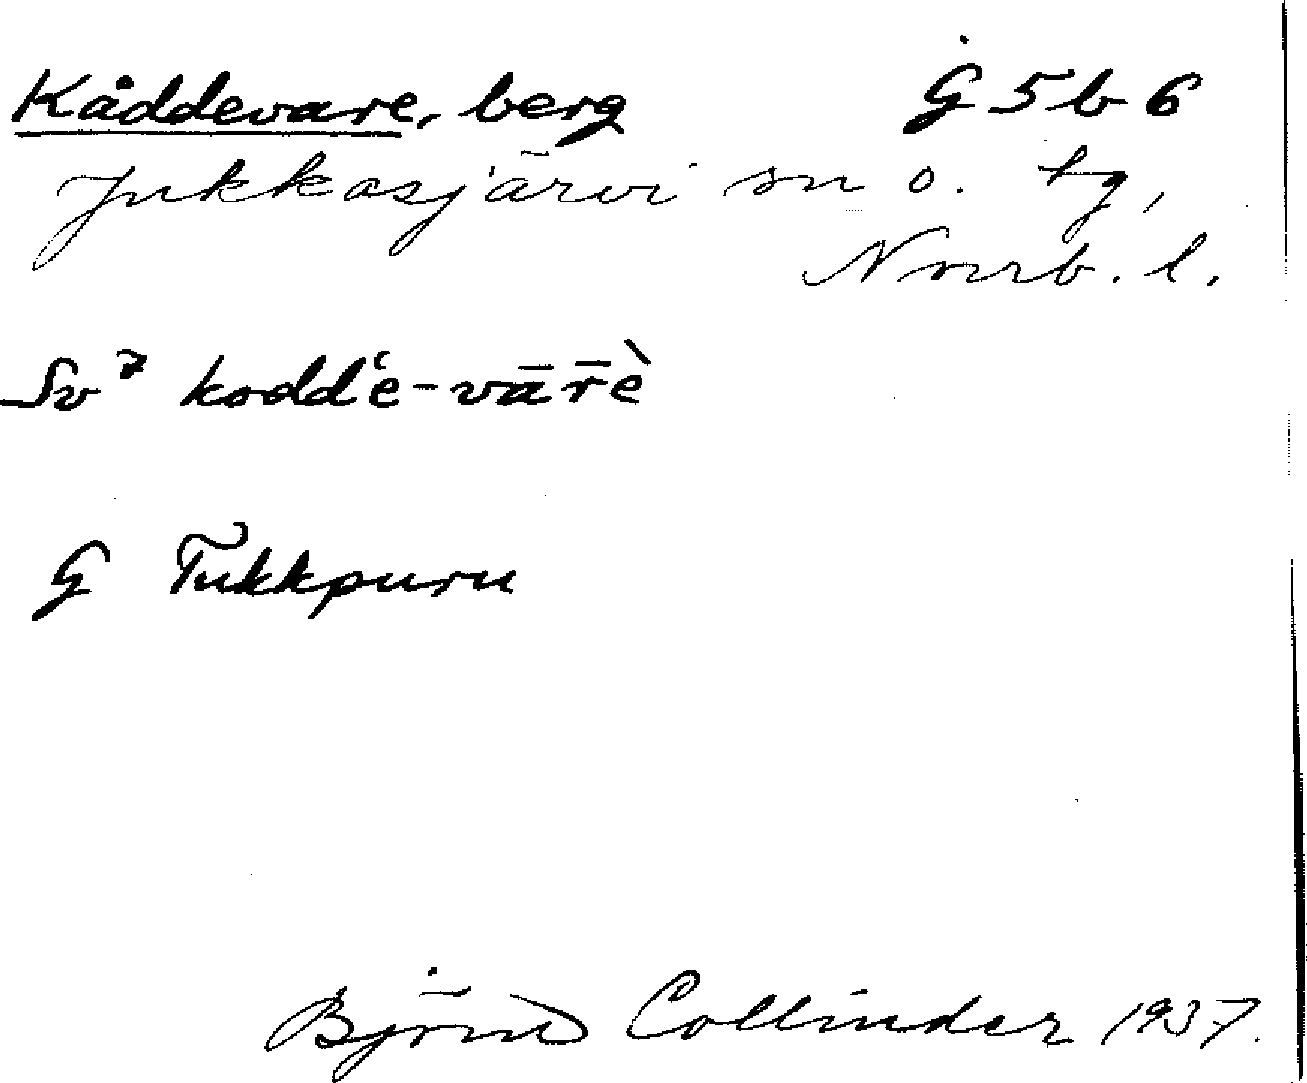 Kåddevare, berg G 5 b 6
Jukkasjärvi sn o. tg,
Norrb. l.
Sv⁷ kodd‘e-vār̄è
G Tukkpuru
Björn Collinder 1937.